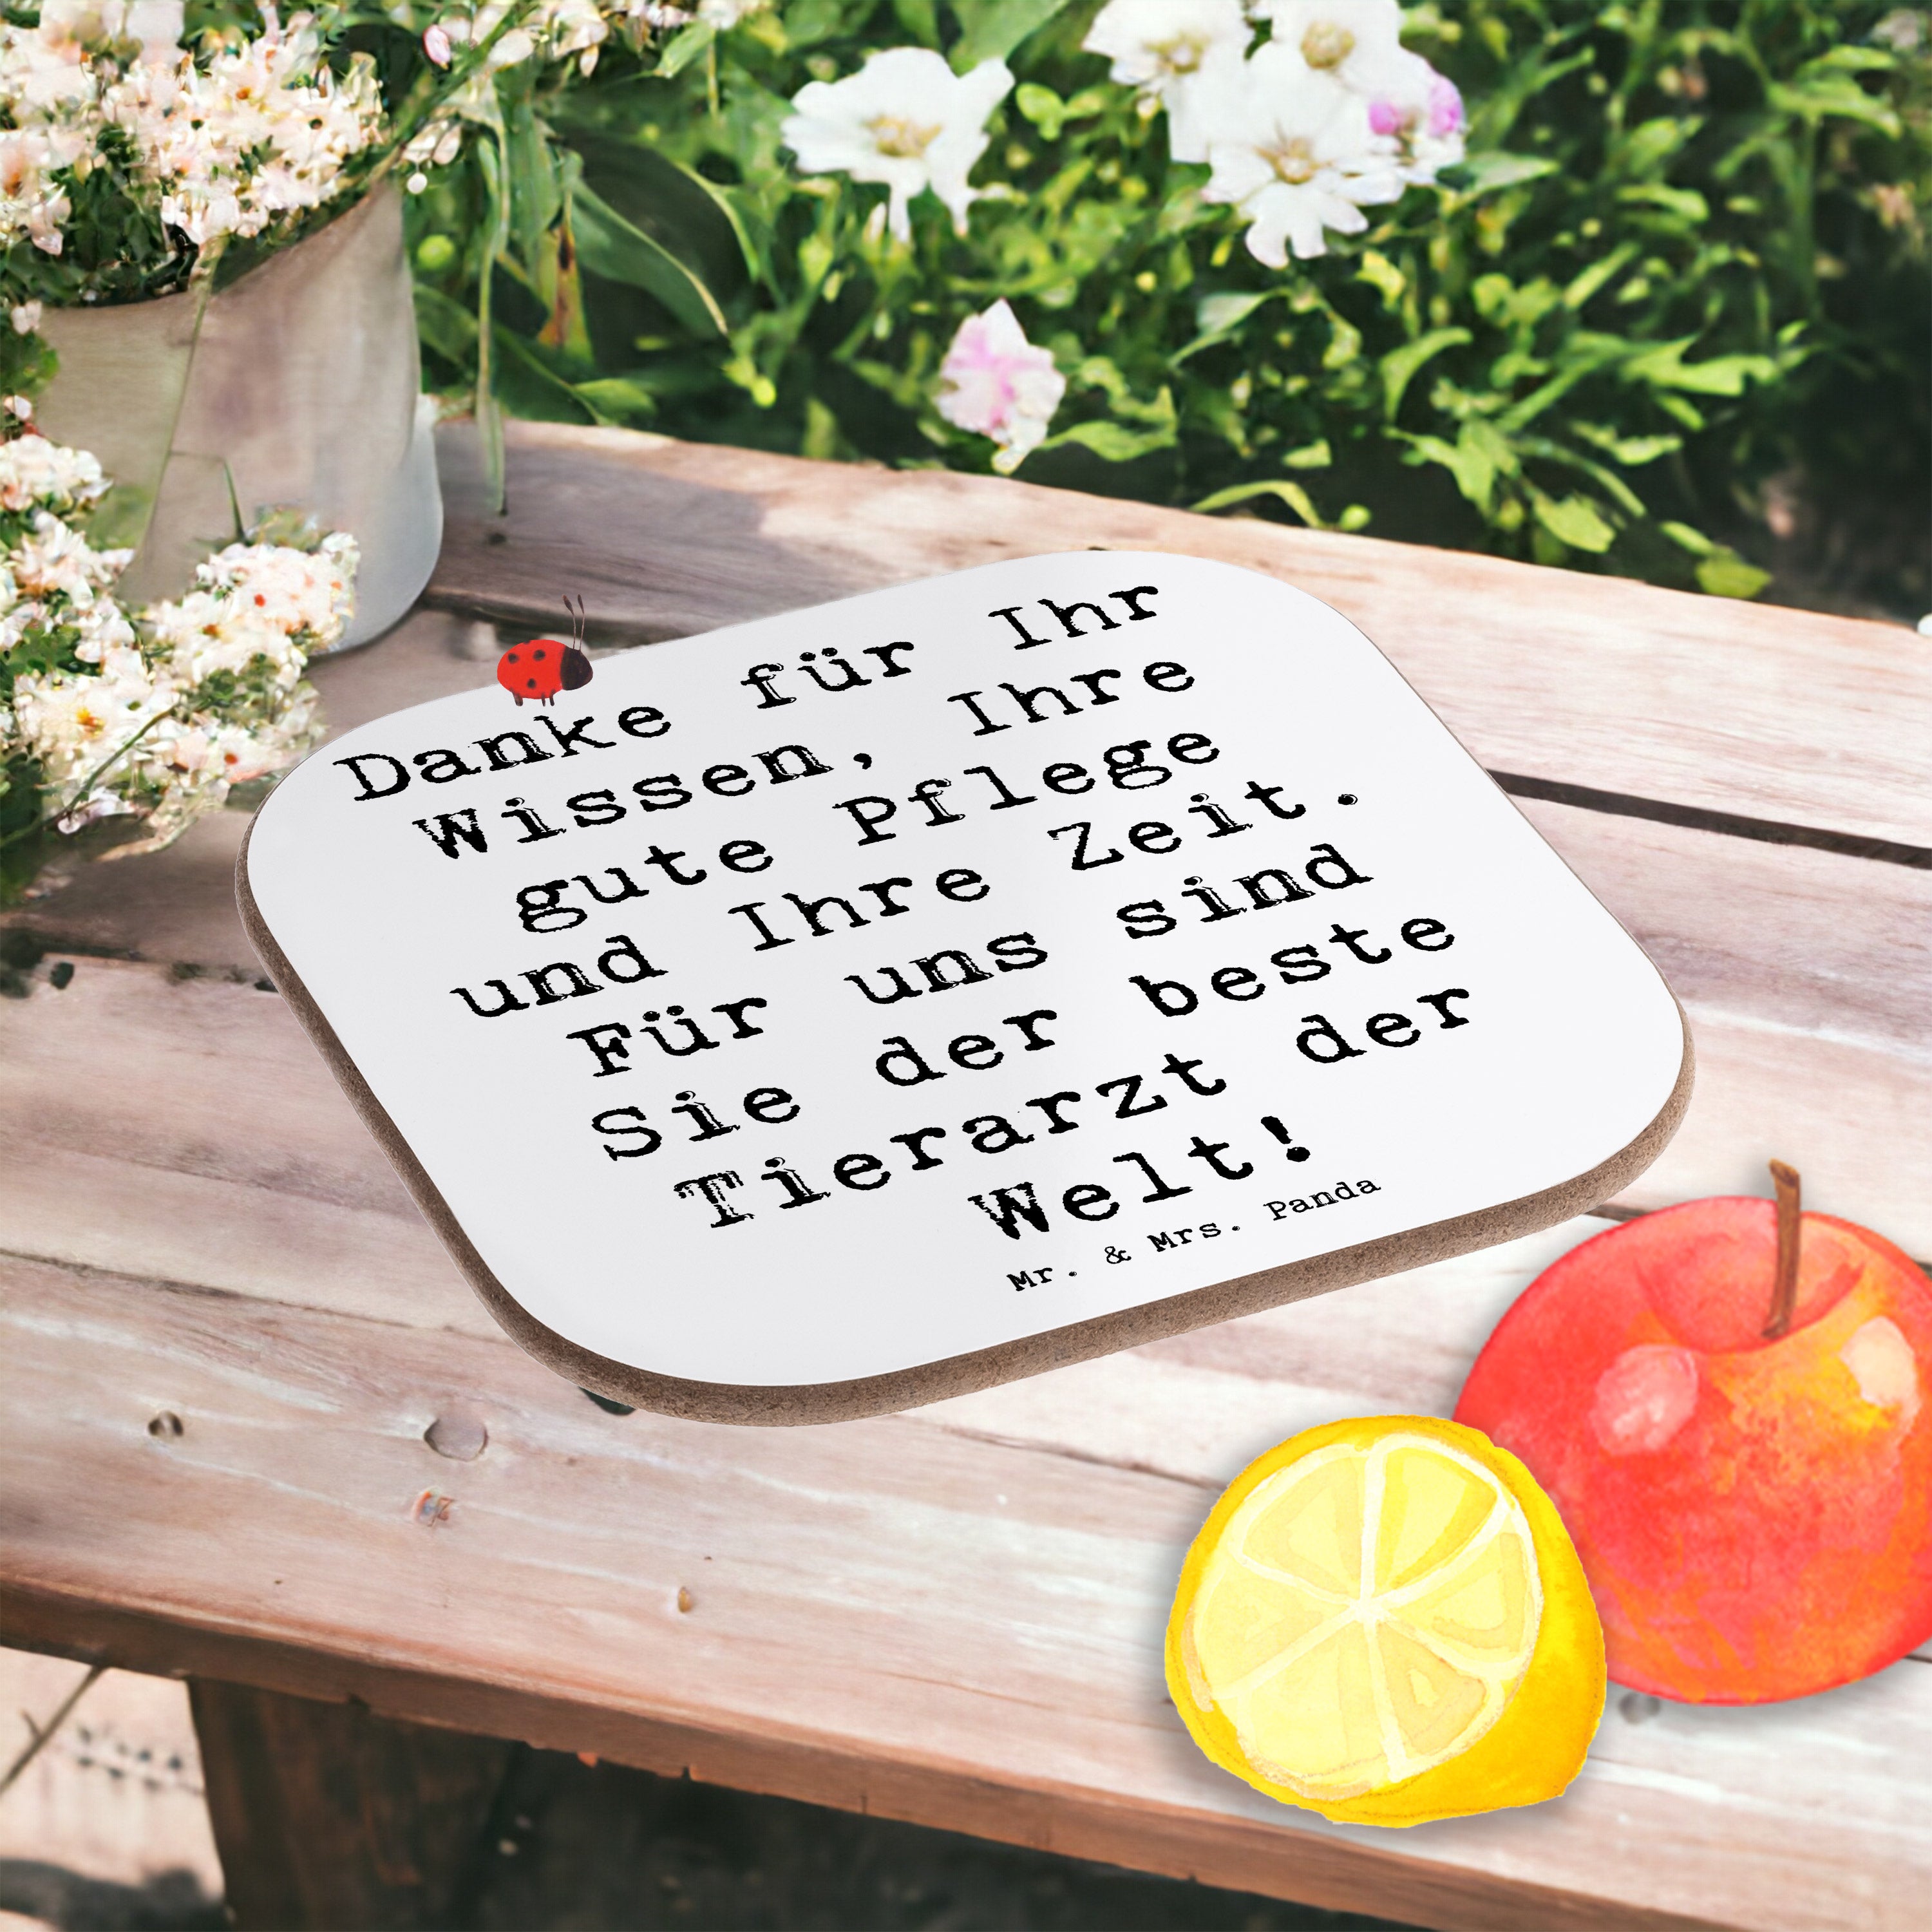 Danke für Ihr
Wissen, Ihre
gute Pflege
und Ihre Zeit.
Für uns sind
Sie der beste
Tierarzt der
Welt!
Mr. & Mrs. Panda